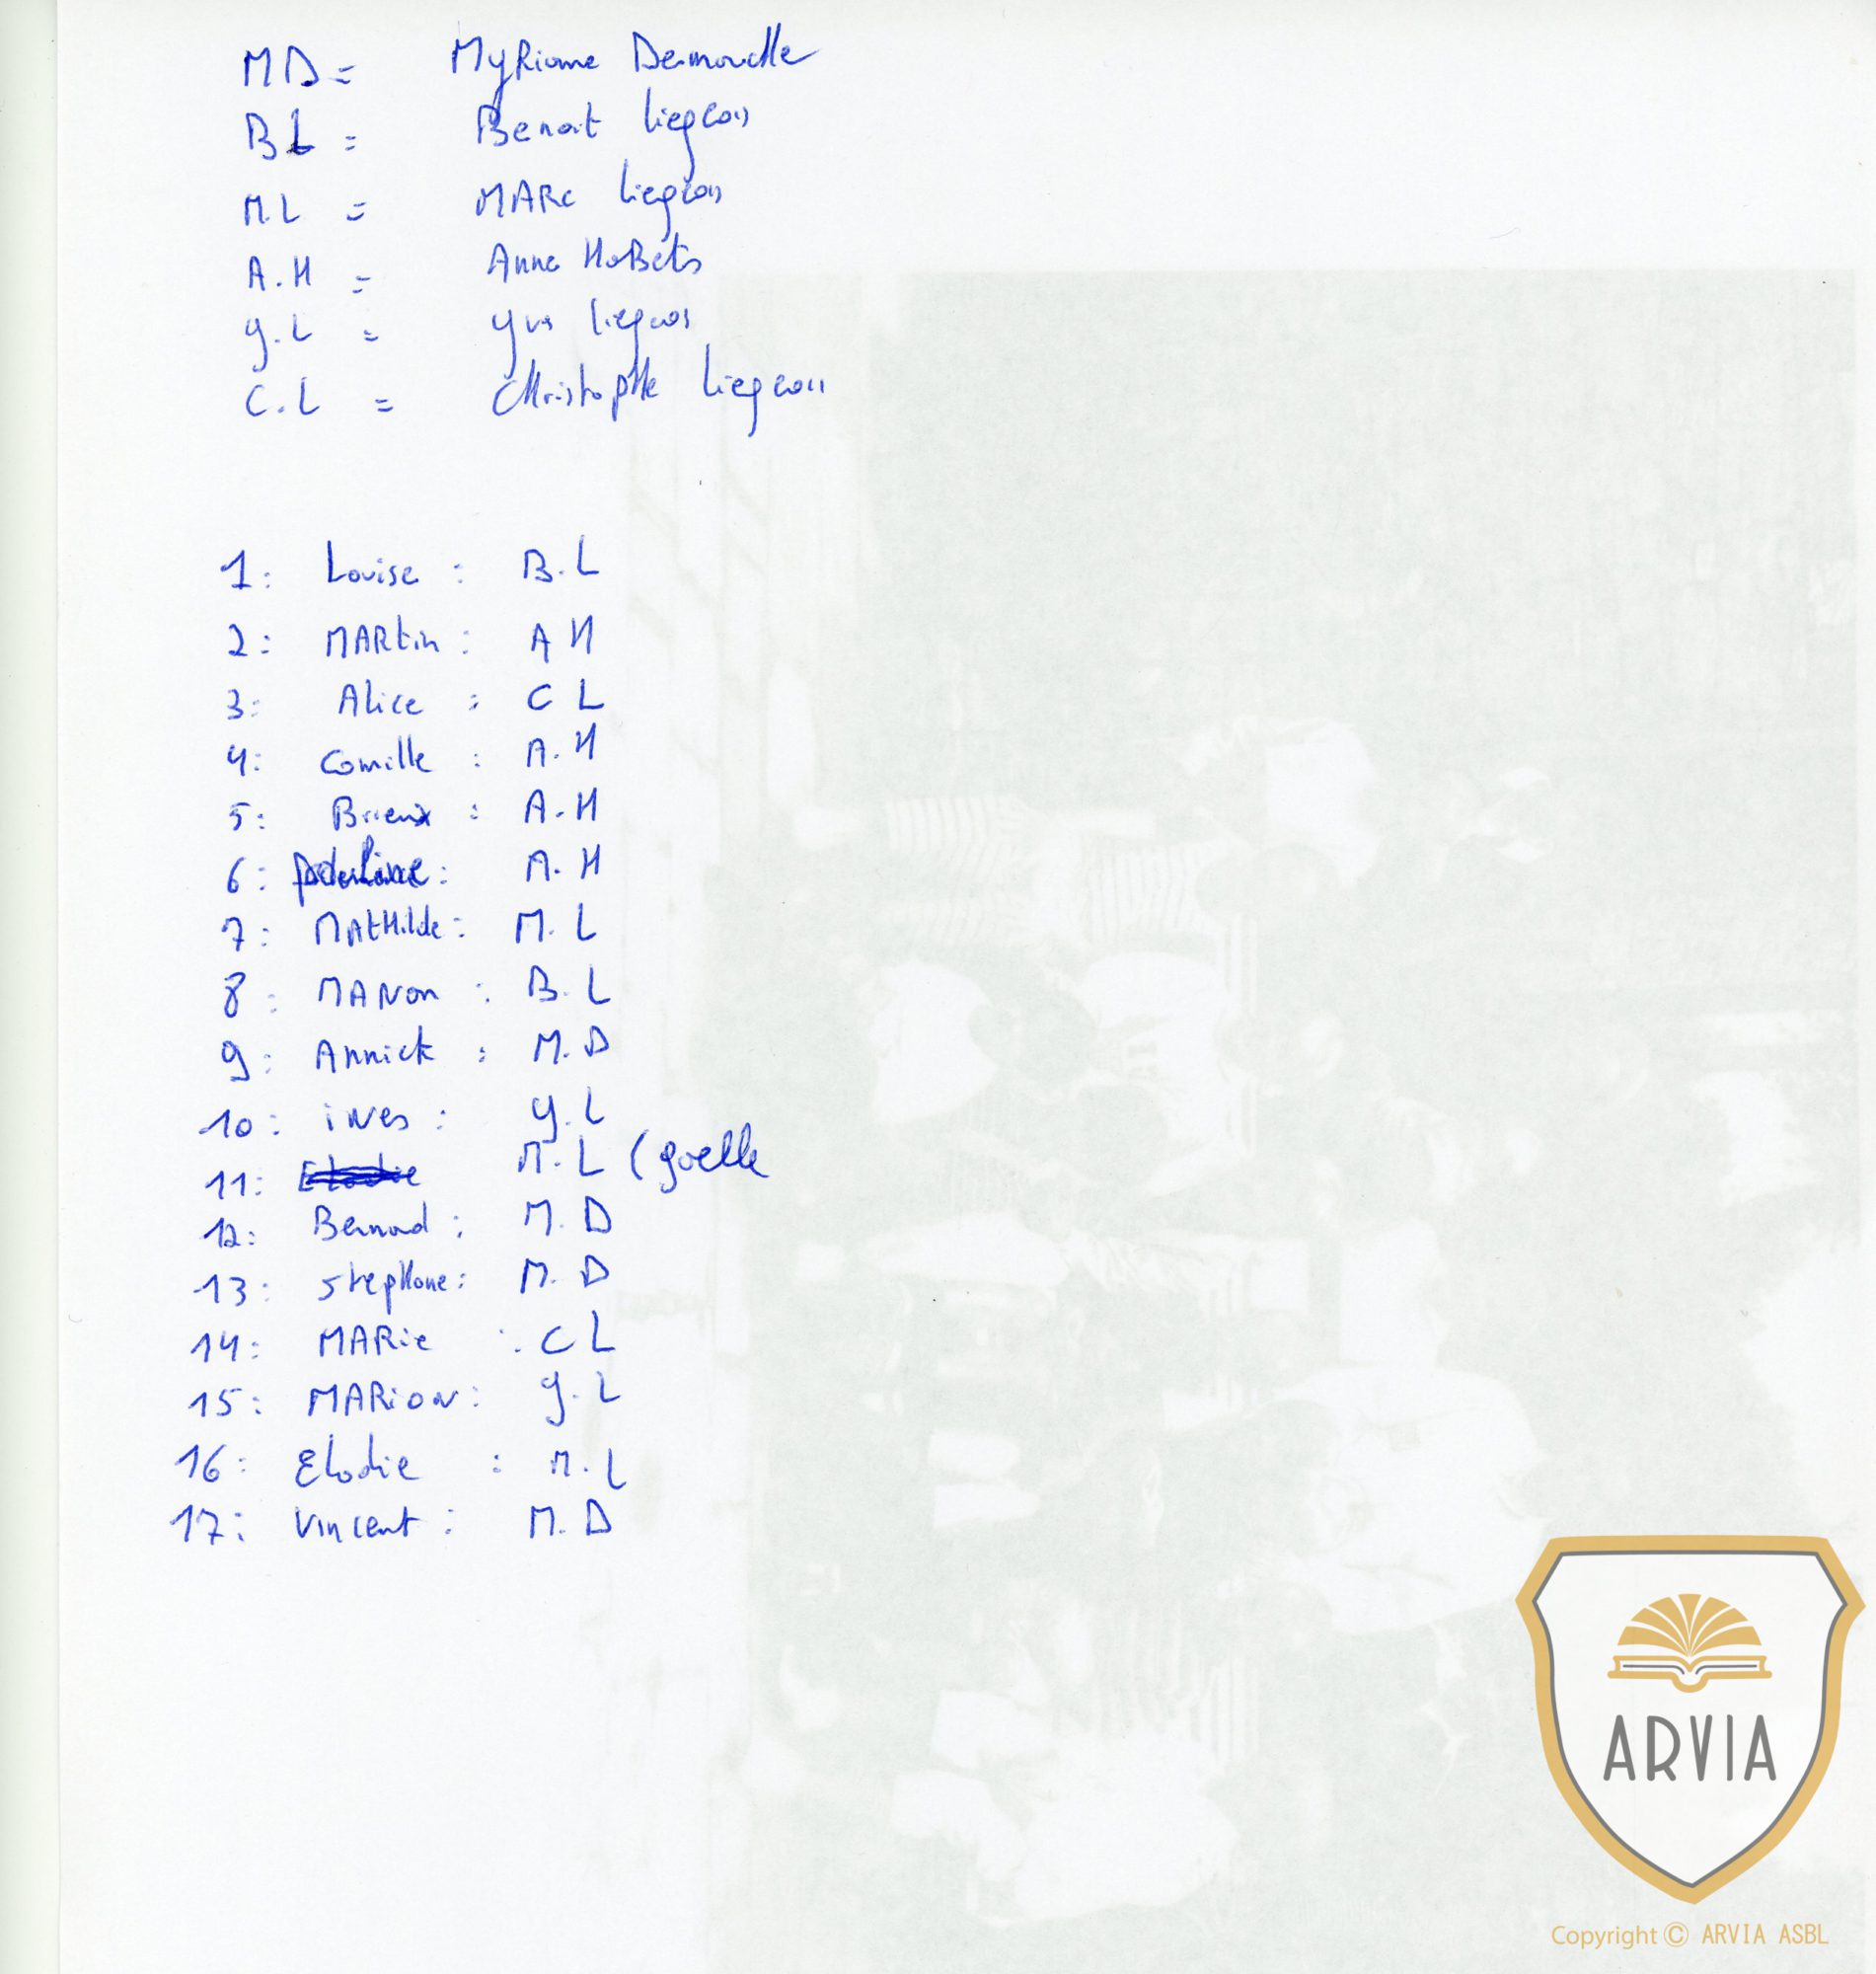 MD = Myriame Demoulle
BL = Benoit liegeois
M.L = MARc liegeois
A.H = Anne HoBets
y.L = yves liegeois
C.L = CHristopHe liegeois
1: Louise : B.L
2: MARtin : A H
3: Alice : C L
4: Camille : A.H
5: Brieux : A.H
6: : A.H
7: MAtHilde : M.L
8: MANon : B.L
9: Annick : M.D
10: iNes : y.L
11: Elodie M.L (gaelle
12: Bernard : M.D
13: stepHane : M.D
14: MARie : C L
15: MARioN : y.L
16: Elodie : M.L
17: Vincent : M.D
ARVIA
Copyright © ARVIA ASBL